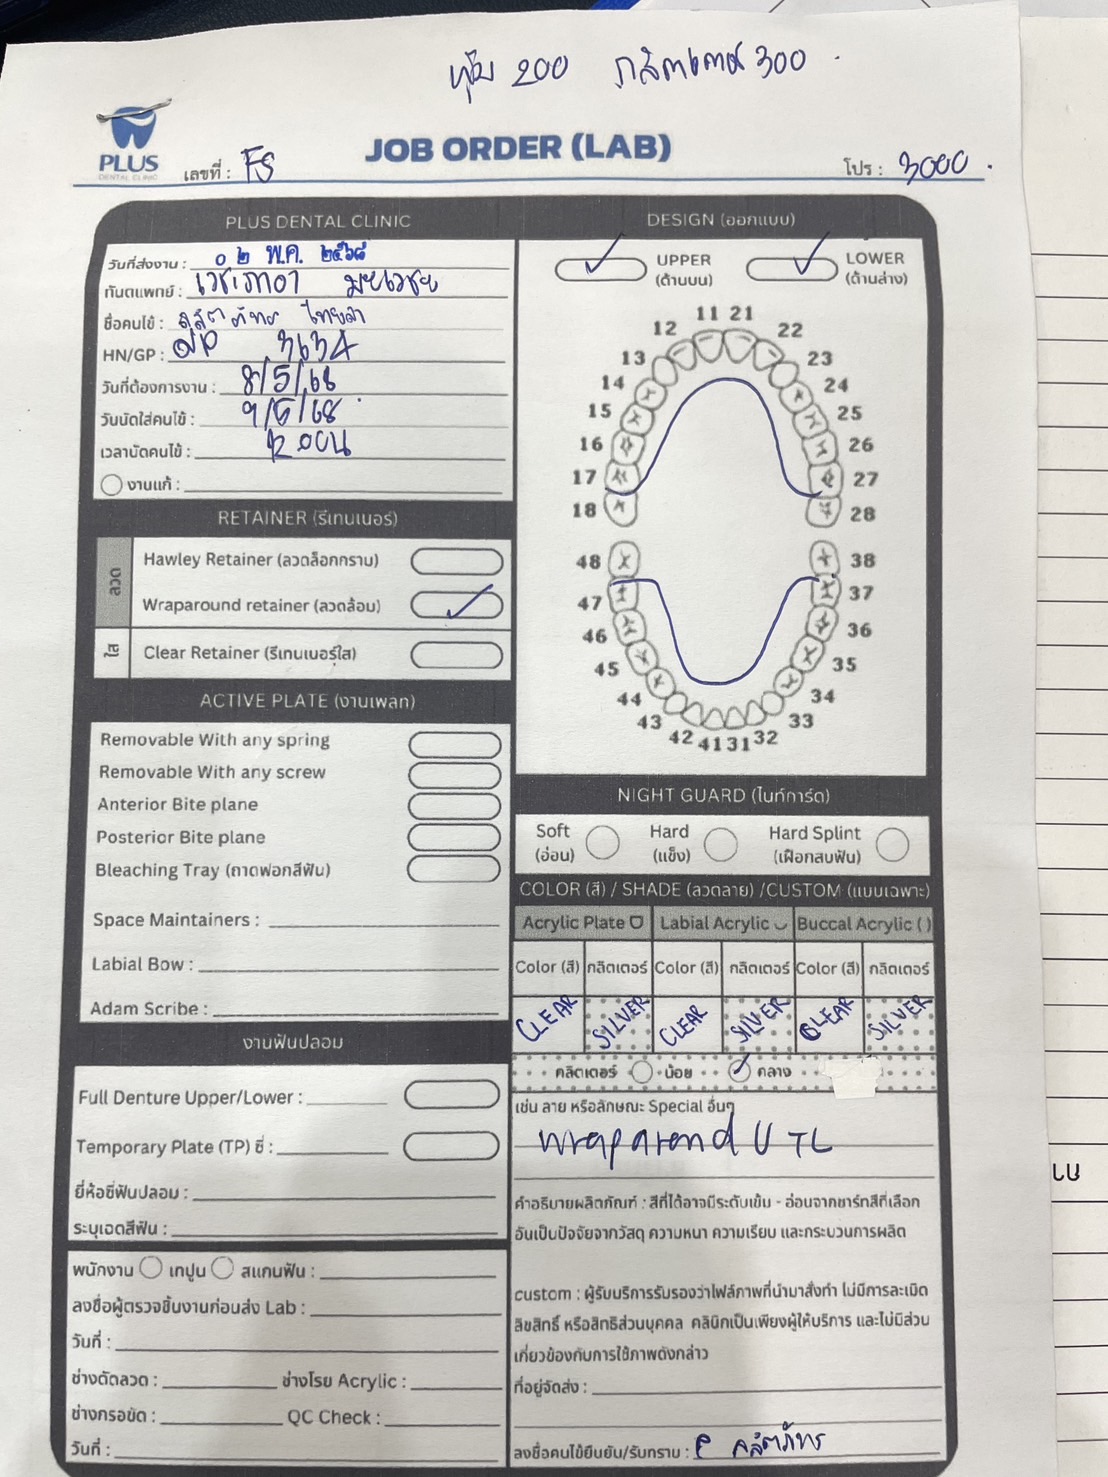 200 300
PLUS
DENTAL CLINIC
เลขที่ : FS
JOB ORDER (LAB)
โปร : 3000
PLUS DENTAL CLINIC
วันที่ส่งงาน : ๐๒ พ.ค. ๒๕๖๘
ทันตแพทย์ :
ชื่อคนไข้ :
HN/GP : 3634
วันที่ต้องการงาน : 8/5/68
วันนัดใส่คนไข้ : 9/5/68
เวลานัดคนไข้ :
งานแก้ :
RETAINER (รีเทนเนอร์)
ลวด
Hawley Retainer (ลวดล็อกกราม)
Wraparound retainer (ลวดล้อม)
ใส
Clear Retainer (รีเทนเนอร์ใส)
ACTIVE PLATE (งานเพลท)
Removable With any spring
Removable With any screw
Anterior Bite plane
Posterior Bite plane
Bleaching Tray (ถาดฟอกสีฟัน)
Space Maintainers :
Labial Bow :
Adam Scribe :
งานฟันปลอม
Full Denture Upper/Lower :
Temporary Plate (TP) ซี่ :
ยี่ห้อซี่ฟันปลอม :
ระบุเฉดสีฟัน :
พนักงาน เทปูน สแกนฟัน :
ลงชื่อผู้ตรวจชิ้นงานก่อนส่ง Lab :
วันที่ :
ช่างดัดลวด : ช่างโรย Acrylic :
ช่างกรอขัด : QC Check :
วันที่ :
DESIGN (ออกแบบ)
UPPER
(ด้านบน)
LOWER
(ด้านล่าง)
11 21
12 22
13 23
14 24
15 25
16 26
17 27
18 28
48 38
47 37
46 36
45 35
44 34
43 33
42 41 31 32
NIGHT GUARD (ไนท์การ์ด)
Soft
(อ่อน)
Hard
(แข็ง)
Hard Splint
(เฝือกสบฟัน)
COLOR (สี) / SHADE (ลวดลาย) /CUSTOM (แบบเฉพาะ)
Acrylic Plate Labial Acrylic Buccal Acrylic ( )
Color (สี) กลิตเตอร์ Color (สี) กลิตเตอร์ Color (สี) กลิตเตอร์
CLEAR SILVER CLEAR SILVER CLEAR SILVER
กลิตเตอร์ น้อย กลาง
เช่น ลาย หรือลักษณะ Special อื่นๆ
wraparend U TL
คำอธิบายผลิตภัณฑ์ : สีที่ได้อาจมีระดับเข้ม - อ่อนจากชาร์ทสีที่เลือก
อันเป็นปัจจัยจากวัสดุ ความหนา ความเรียบ และกระบวนการผลิต
custom : ผู้รับบริการรับรองว่าไฟล์ภาพที่นำมาสั่งทำ ไม่มีการละเมิด
ลิขสิทธิ์ หรือสิทธิส่วนบุคคล คลินิกเป็นเพียงผู้ให้บริการ และไม่มีส่วน
เกี่ยวข้องกับการใช้ภาพดังกล่าว
ที่อยู่จัดส่ง :
ลงชื่อคนไข้ยืนยัน/รับทราบ :